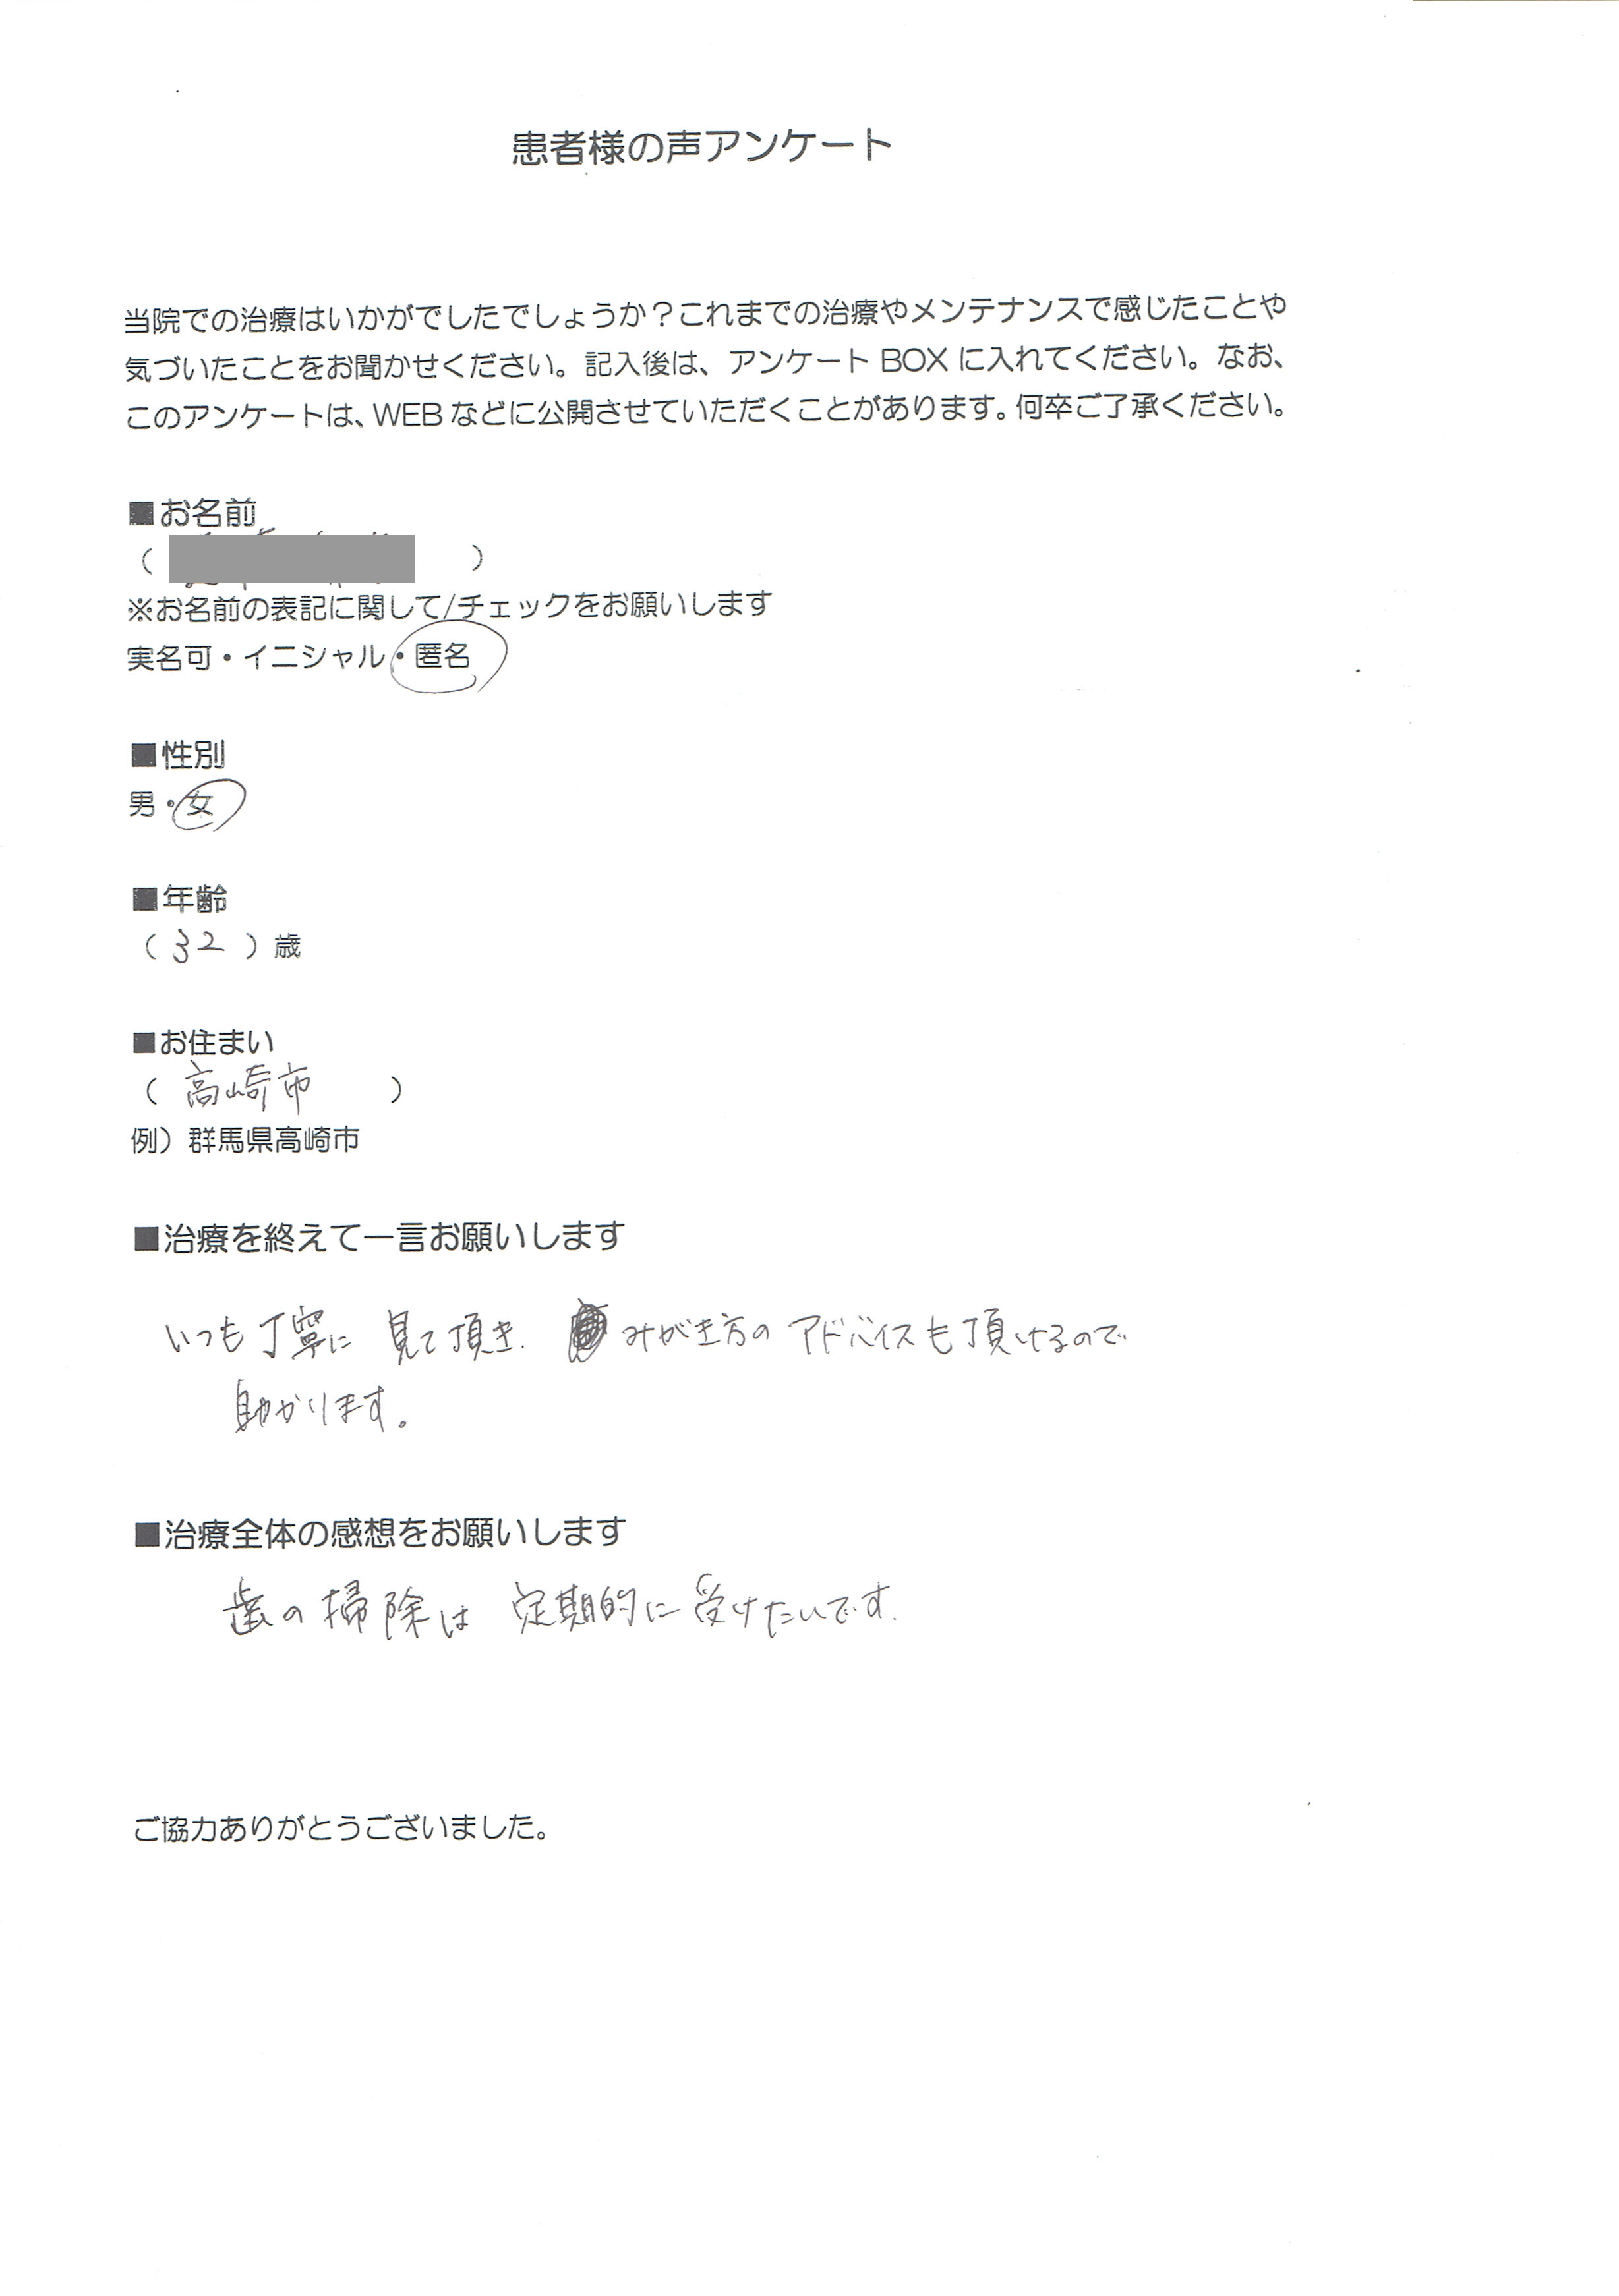 患者様の声アンケート
当院での治療はいかがでしたでしょうか？これまでの治療やメンテナンスで感じたことや
気づいたことをお聞かせください。記入後は、アンケート BOX に入れてください。なお、
このアンケートは、WEB などに公開させていただくことがあります。何卒ご了承ください。
■お名前
（ ）
※お名前の表記に関して/チェックをお願いします
実名可・イニシャル・匿名
■性別
男・女
■年齢
（32）歳
■お住まい
（高崎市）
例）群馬県高崎市
■治療を終えて一言お願いします
いつも丁寧に見て頂き、みがき方のアドバイスも頂けるので
助かります。
■治療全体の感想をお願いします
歯の掃除は定期的に受けたいです.
ご協力ありがとうございました。